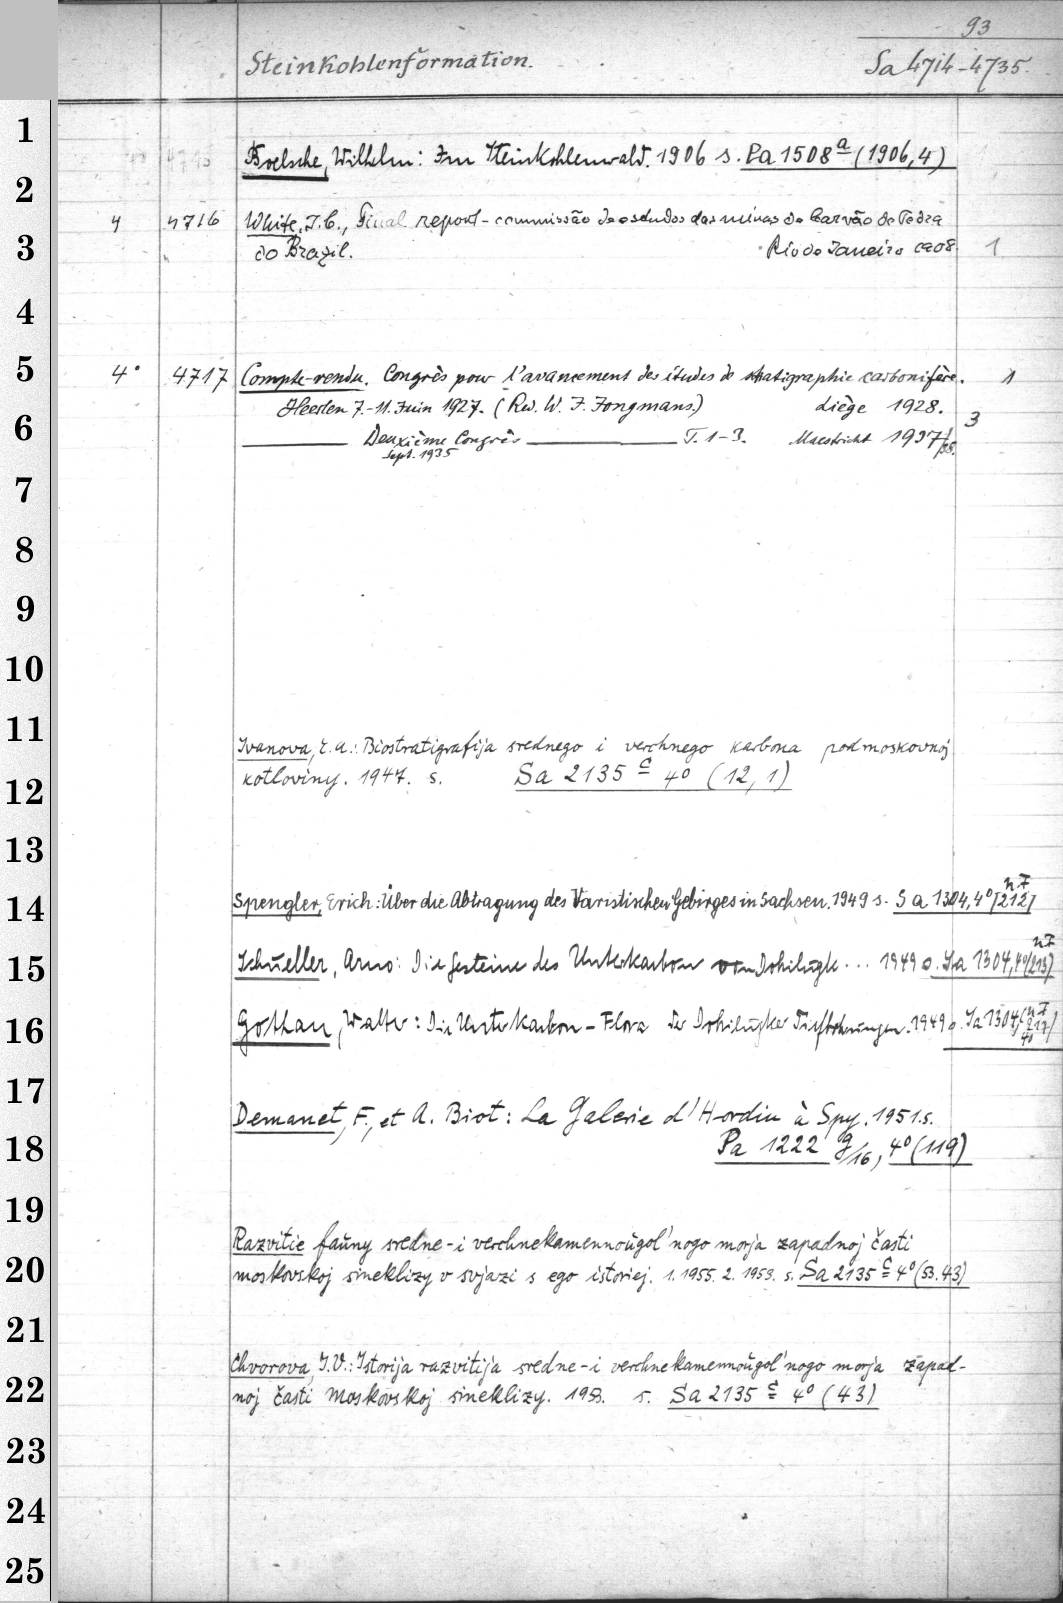 93
Steinkohlenformation. Sa 4714-4735.
1
Boelsche, Wilhelm: Im Steinkohlenwald. 1906 s. Pa 1508 a (1906, 4)
2
4 4716 White, I. C., Final report - commissão de estudos das minas de Carvão de Pedra
3
do Brazil. Rio de Janeiro 1908 1
4
5
4° 4717 Compte-rendu. Congrès pour l'avancement des études de stratigraphie carbonifère. 1
Heerlen 7.-11. Juin 1927. (Red. W. J. Jongmans.) Liège 1928.
6
Deuxième Congrès T. 1-3. Maestricht 1937/38. 3
Sept. 1935
7
8
9
10
11
Ivanova, E. A.: Biostratigrafija srednego i verchnego karbona podmoskovnoj
12
kotloviny. 1947. s. Sa 2135 c 4° (12, 1)
13
14
Spengler, Erich: Über die Abtragung des Varistischen Gebirges in Sachsen. 1949 s. Sa 1304, 4° [212]
15
Schüller, Arno: Die Gesteine des Unterkarbon von Dobrilugk ... 1949 s. Sa 1304, 4° [213]
16
Gothan, Walter: Die Unterkarbon-Flora der Dobrilugker Tiefbohrungen. 1949 s. Sa 1304, 4° [217]
17
Demanet, F., et A. Biot: La Galerie d'Hordin à Spy. 1951. s.
18
Pa 1222 g/16, 4° (119)
19
20
Razvitie fauny sredne- i verchnekamennougol'nogo morja zapadnoj časti
moskovskoj sineklizy v svjazi s ego istoriej. 1. 1955. 2. 1953. s. Sa 2135 c 4° (53. 43)
21
Chvorova, I. V.: Istorija razvitija sredne- i verchnekamennougol'nogo morja zapad-
22
noj časti Moskovskoj sineklizy. 1953. s. Sa 2135 c 4° (43)
23
24
25